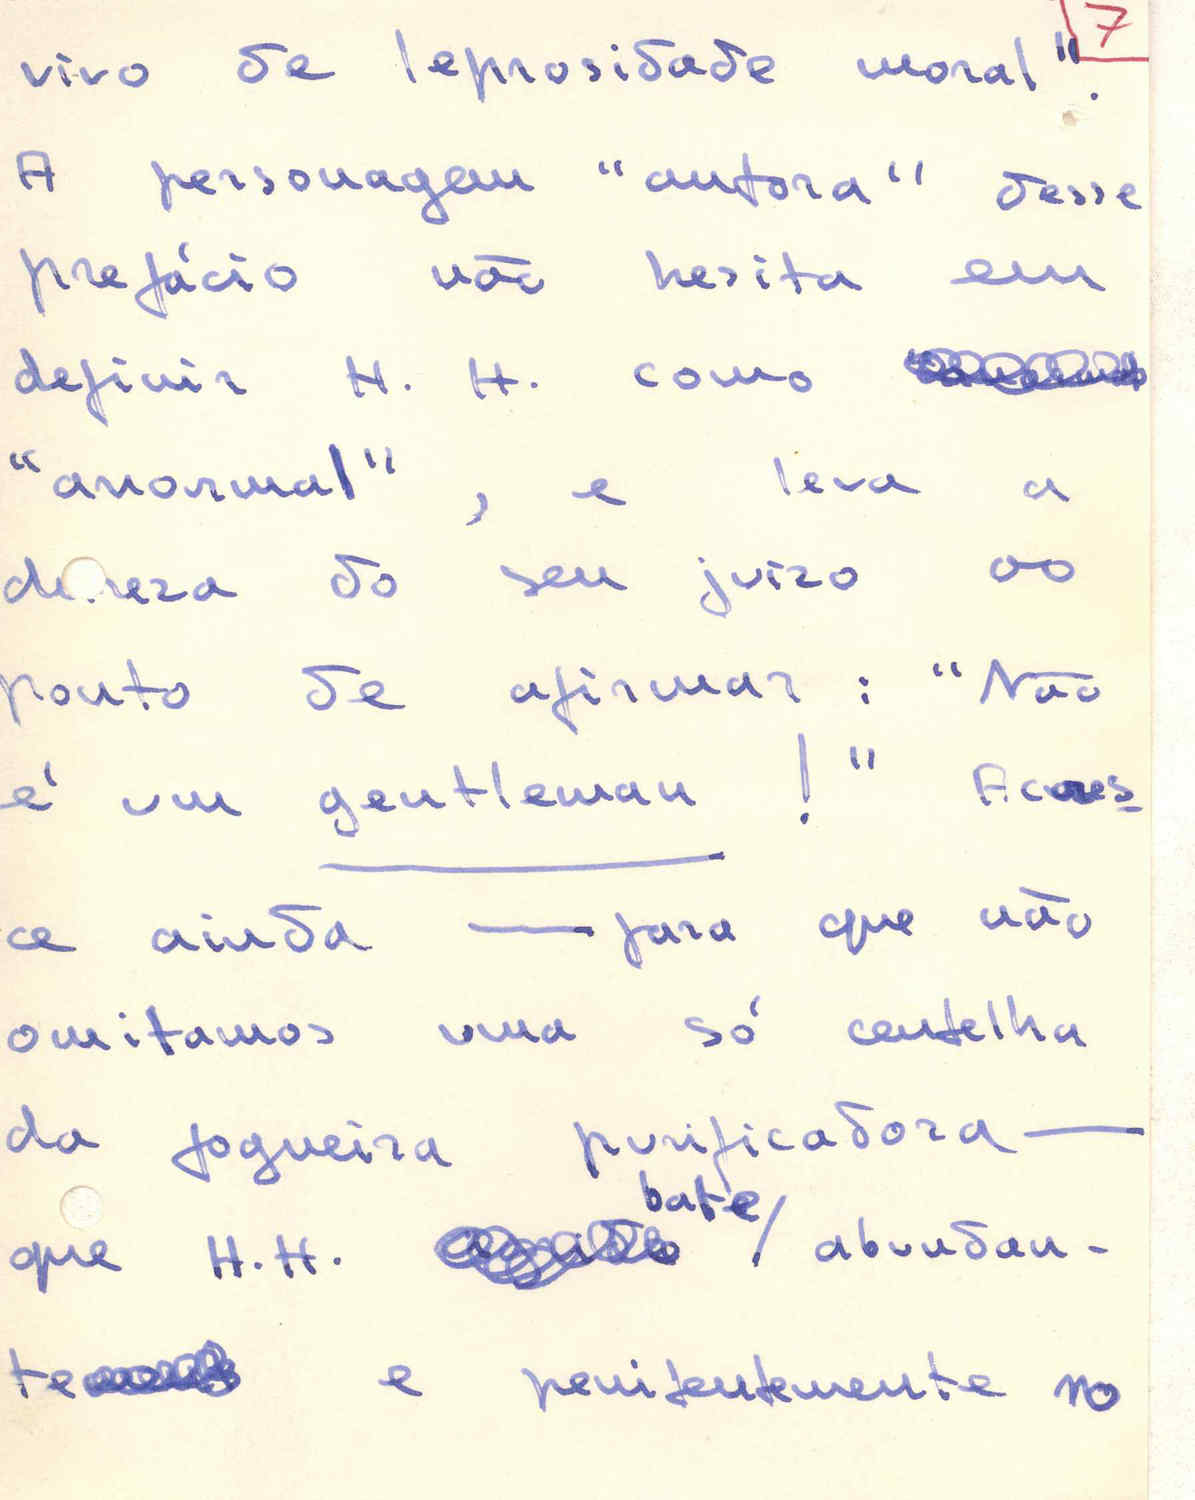 7
vivo de leprosidade moral".
A personagem "autora" desse
prefácio não hesita em
definir H. H. como
"anormal", e leva a
du reza do seu juizo ao
ponto de afirmar: "Não
é um gentleman!" Acres-
ce ainda — para que não
omitamos uma só centelha
da fogueira purificadora —
bate/
que H.H. abundan-
te e penitentemente no